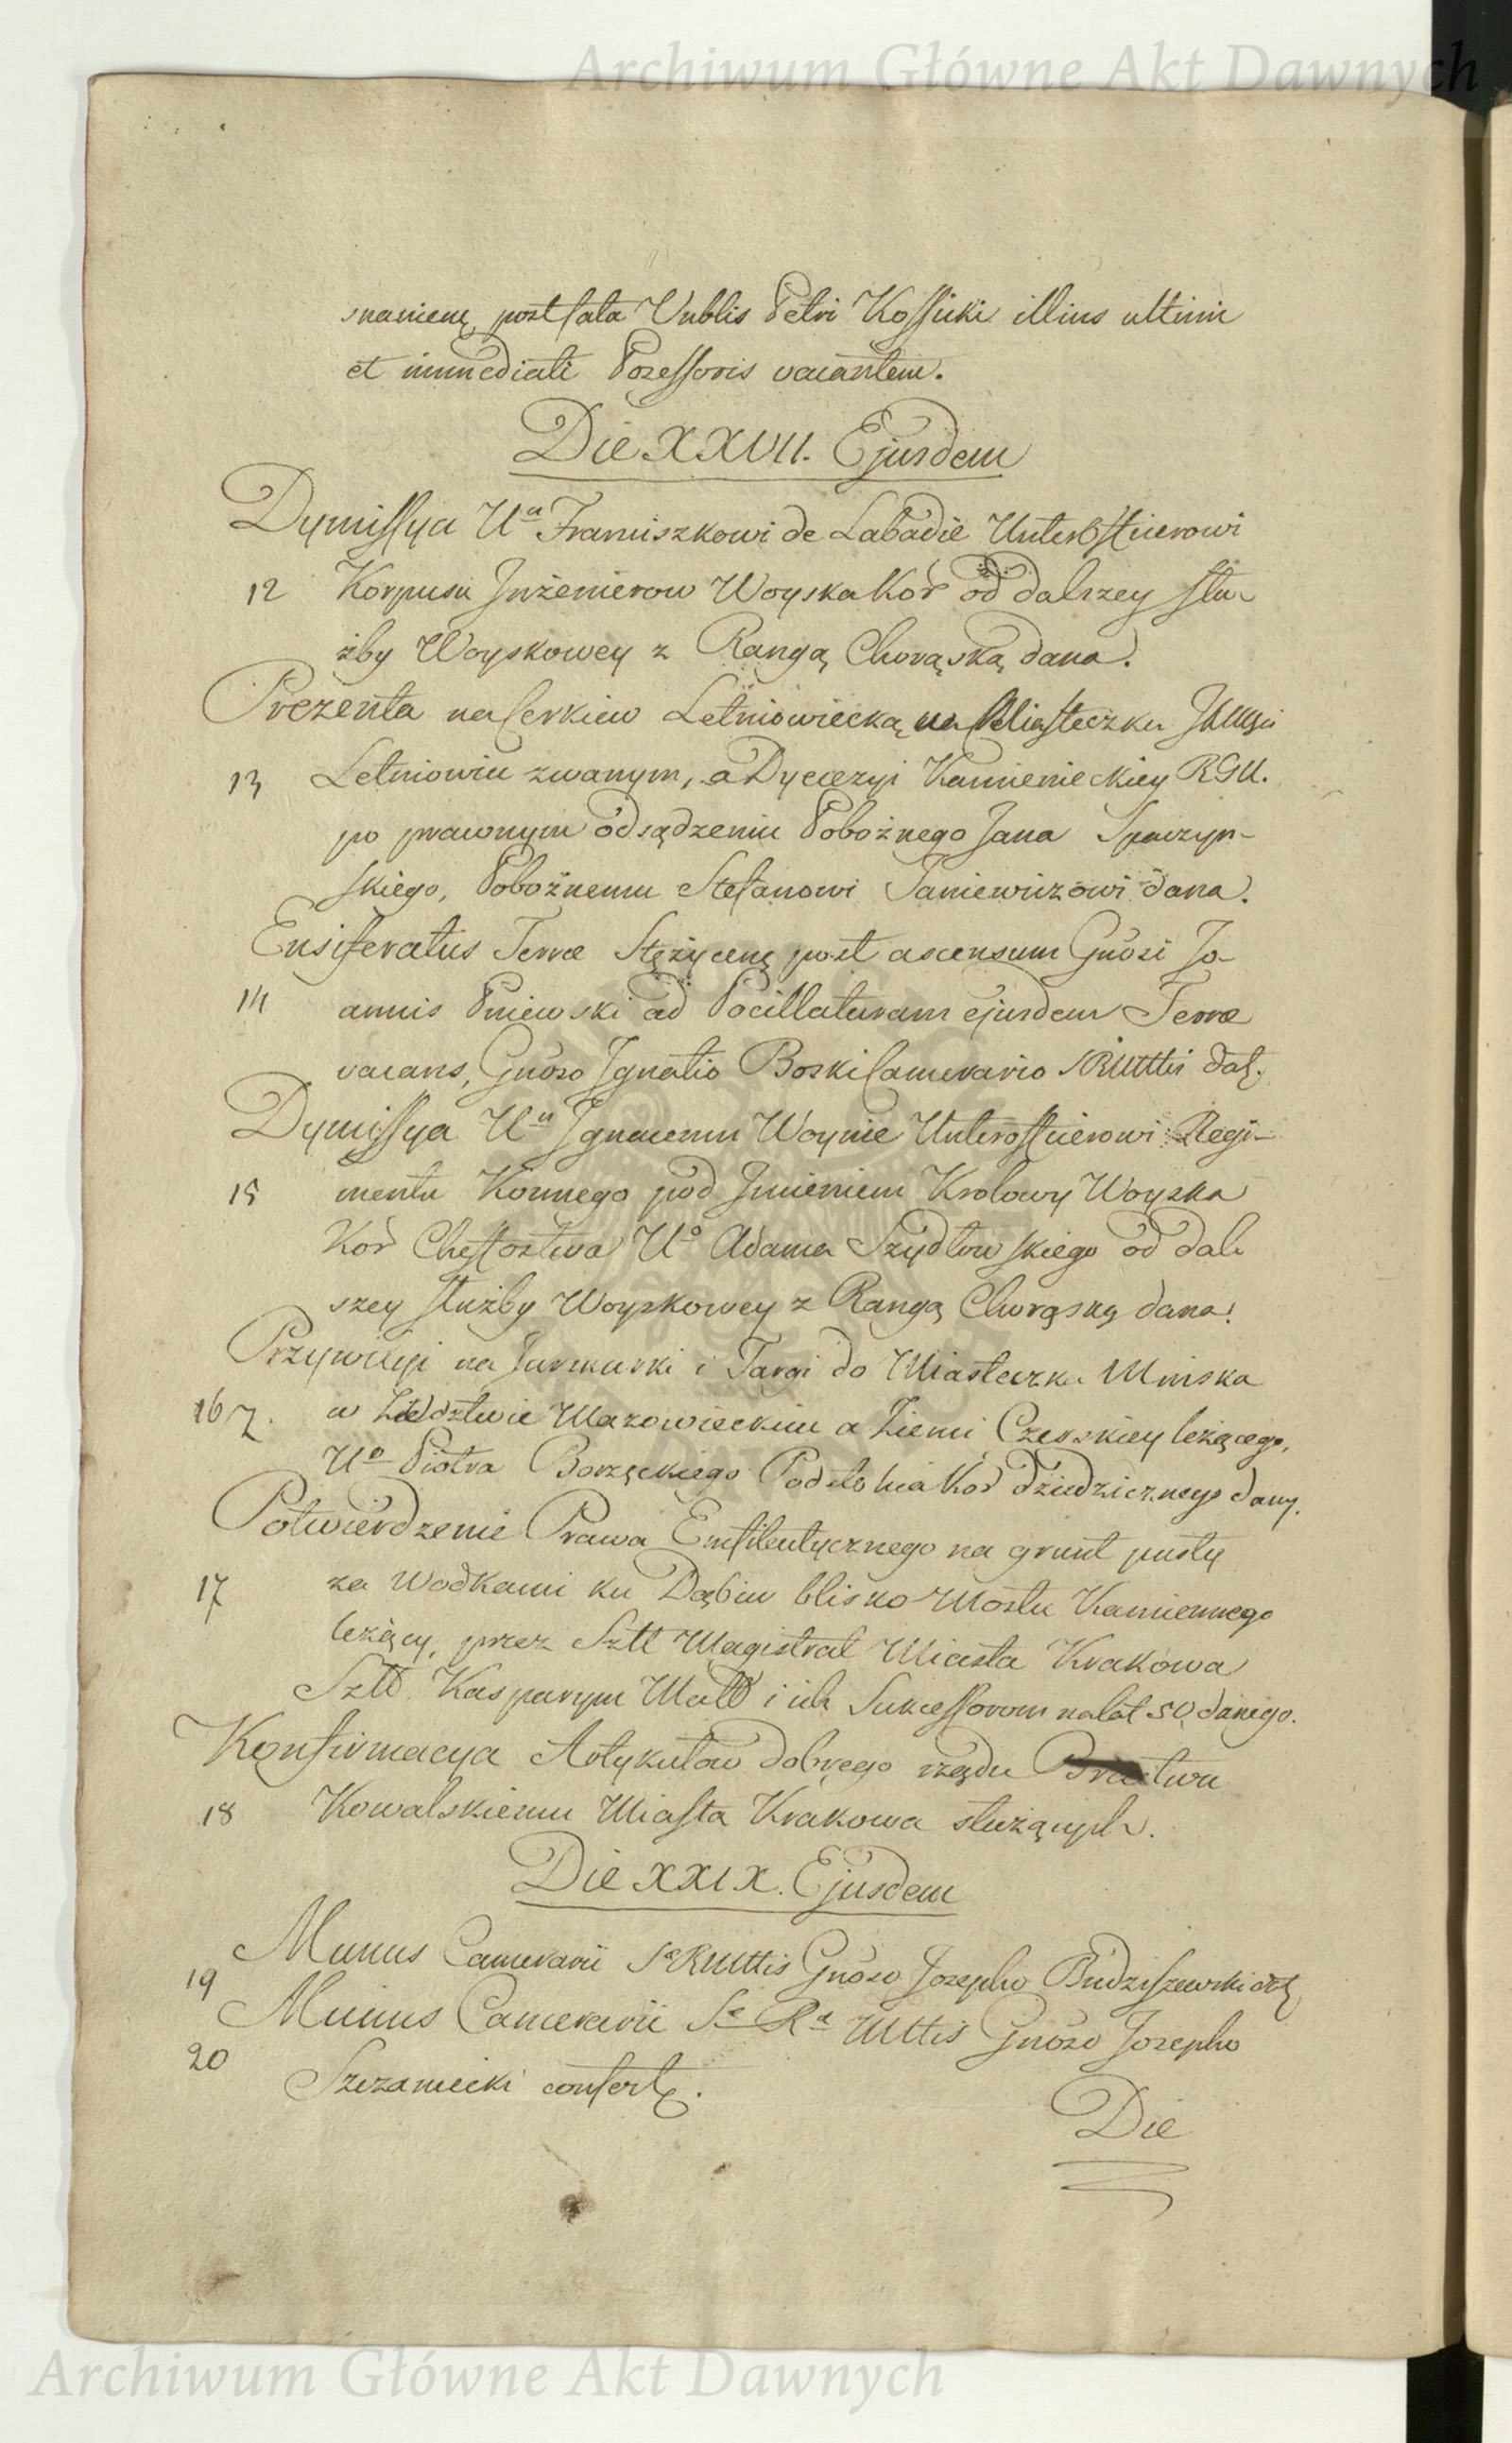 Archiwum Główne Akt Dawnych
snamienę, post fata Vnblis Petri Kossicki illius ultimi
et immediati Possessoris vacantem.
Die XXVII. Ejusdem
Dymissya Uu Franciszkowi de Labadie Unterofficierowi
12 Korpusu Jnżenierow Woyska Kor od dalszey słu-
żby Woyskowey z Rangą Chorąską dana.
Prezenta na Cerkiew Letniowiecką na Miasteczku
13 Letniowiu zwanym, a Dyecezyi Kamienieckiey RGU.
po prawnym odsądzeniu Pobożnego Jana Spaczyn-
skiego, Pobożnemu Stefanowi Janiewiczowi dana.
Ensiferatus Terræ Stężycenę post ascensum Gnosi Jo-
14 annis Pniewski ad Pocillaturam ejusdem Terræ
vacans, Gnoso Jgnatio Boski Camerario SRMttis dat.
Dymissya Uu Jgnacemu Woynie Unterofficierowi Regi-
15 mentu Konnego pod Jmieniem Krolowy Woyska
Kor Cheffostwa Uo Adama Szydłowskiego od dal-
szey służby Woyskowey z Rangą Chorąską dana.
Przywiley na Jarmarki i Targi do Miasteczka Minska
16 7. w Wdztwie Mazowieckim a Ziemi Czerskiey leżącego,
Uo Piotra Borzęckiego Podstolica Kor dziedzicznego dany.
Potwierdzenie Prawa Emfiteutycznego na grunt pusty
17 za Wodkami ku Dąbiu blisko Mostu Kamiennego
leżący, przez Sztt Magistrat Miasta Krakowa
Sztt. Kasparym Matt i ich Sukcessorom na lat 50, danego.
Konfirmacya Artykułow dobrego rządu Bractwu
18 Kowalskiemu Miasta Krakowa służących.
Die XXIX. Ejusdem
19 Munus Camerarii SaRMttis Gnoso Josepho Budziszewski
Munus Camerarii Sa Ra Mttis Gnoso Josepho
20 Szczaniecki confert.
Die
Archiwum Główne Akt Dawnych